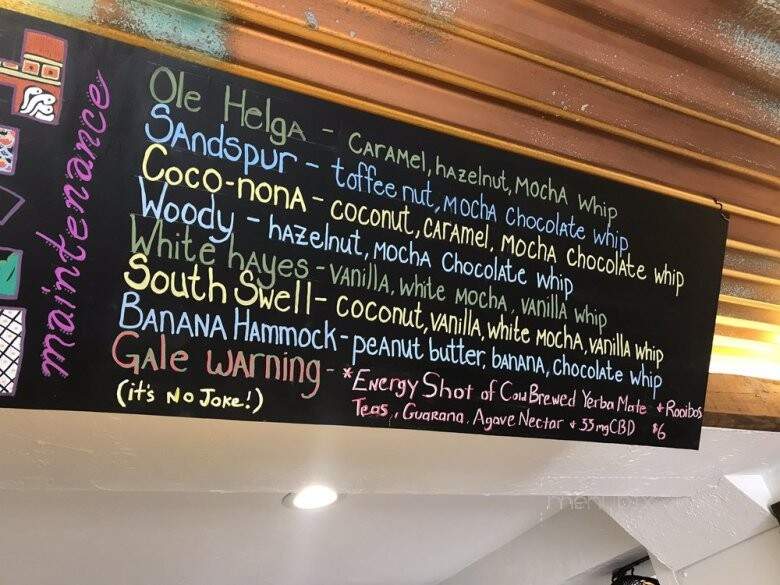 maintenance
Ole Helga - Caramel, hazelnut, Mocha whip
Sandspur - toffee nut, Mocha Chocolate whip
Coco-nona - coconut, caramel, Mocha Chocolate whip
Woody - hazelnut, Mocha Chocolate whip
White hayes - vanilla, white mocha, vanilla whip
South Swell - coconut, vanilla, white mocha, vanilla whip
Banana Hammock - peanut butter, banana, chocolate whip
Gale Warning - *Energy Shot of Cold Brewed Yerba Mate + Rooibos
(it's No Joke!) Teas, Guarana, Agave Nectar + 33mg CBD $6